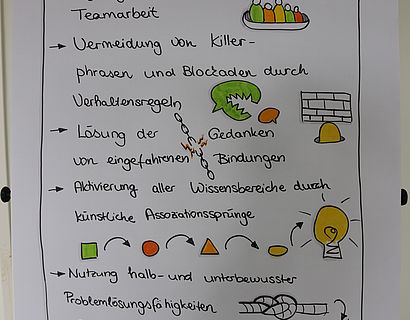 Teamarbeit
→ Vermeidung von Killer-
phrasen und Blockaden durch
Verhaltensregeln
→ Lösung der Gedanken
von eingefahrenen Bindungen
→ Aktivierung aller Wissensbereiche durch
künstliche Assoziationssprünge
→ Nutzung halb- und unterbewusster
Problemlösungsfähigkeiten